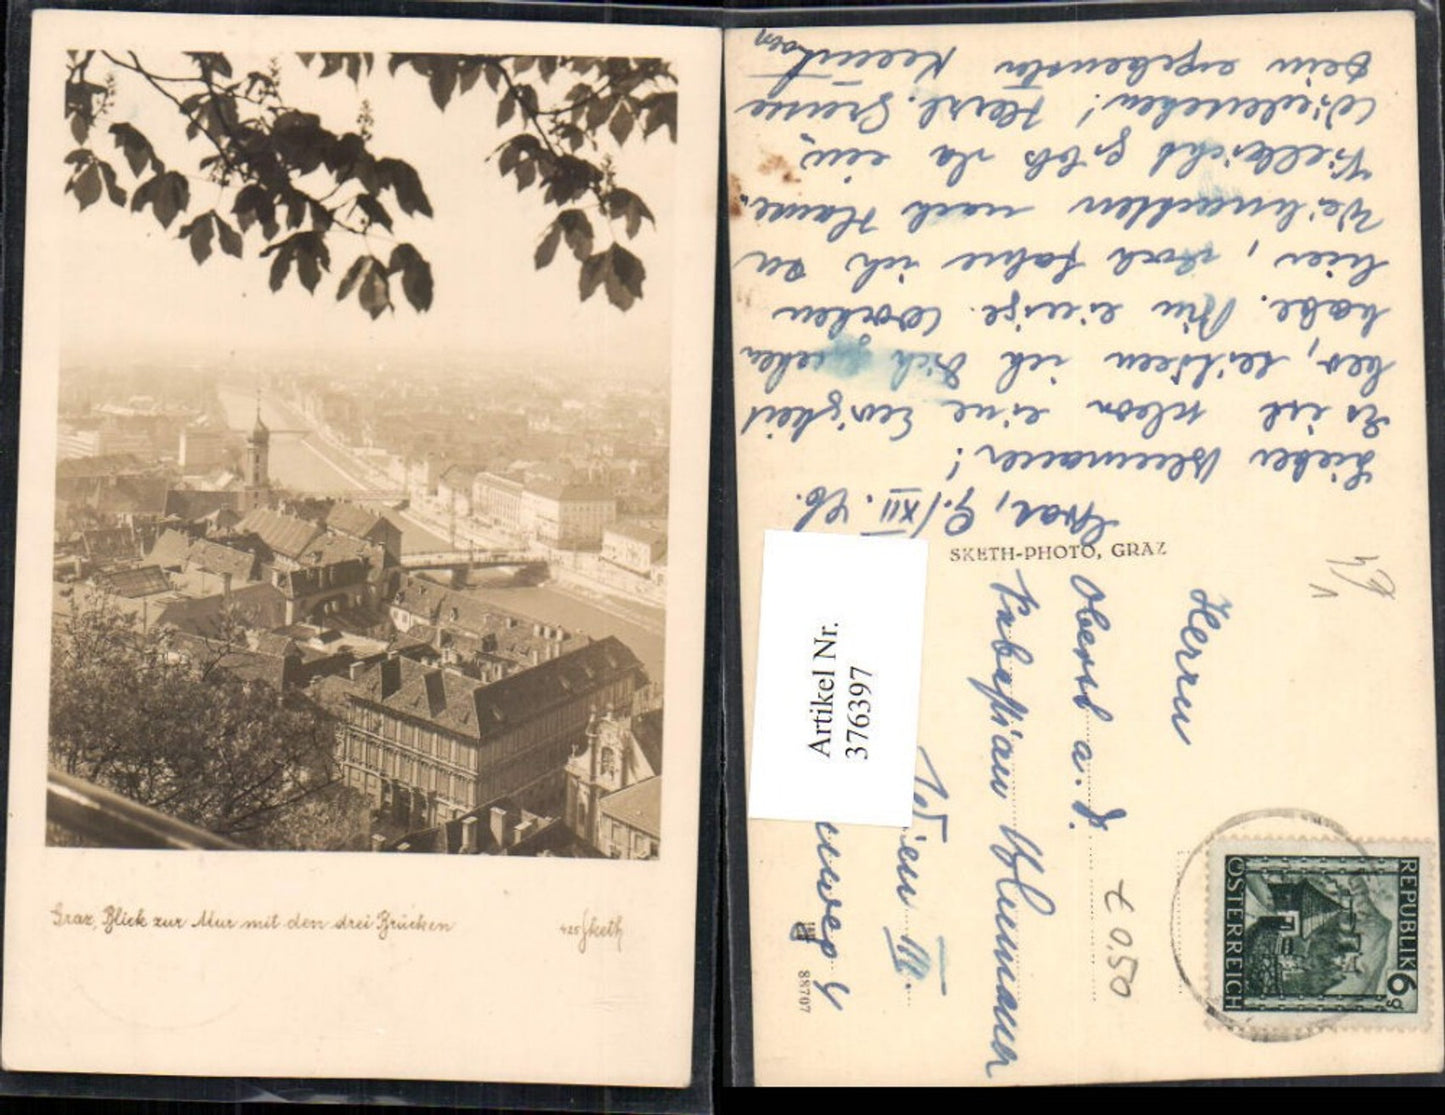 Graz, Blick zur Mur mit den drei Brücken
425 Sketh
Graz, 9./XII. 46.
Lieber Blumauer!
Es ist schon eine Ewigkeit
her, seitdem ich Dich gesehen
habe. Bin einige Wochen
hier, doch fahre ich zu
Weihnachten nach Hause.
Vielleicht gibts da ein
Wiedersehen! Herzl. Grüsse
Dein ergebenster
SKETH-PHOTO, GRAZ
Herrn
Oberst a. D.
Sebastian Blumauer
Wien III.
nweg 4
Artikel Nr.
376397
88707
€ 0.50
REPUBLIK
ÖSTERREICH
6g